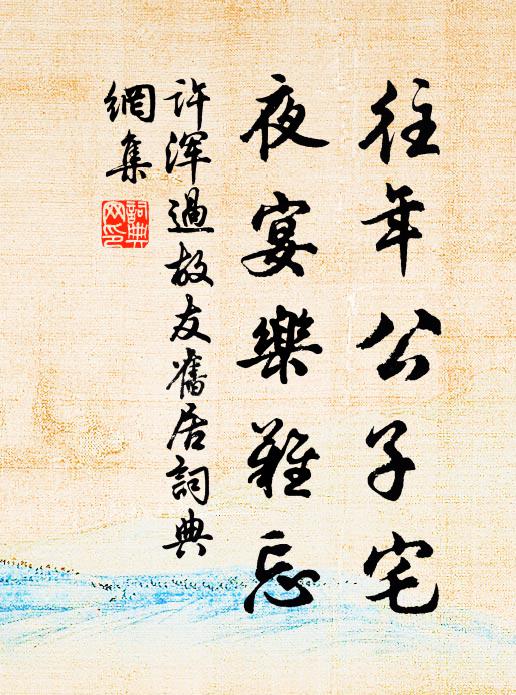 往年公子宅
夜宴樂難忘
許渾過故友舊居詞典
網集
詞典
网印